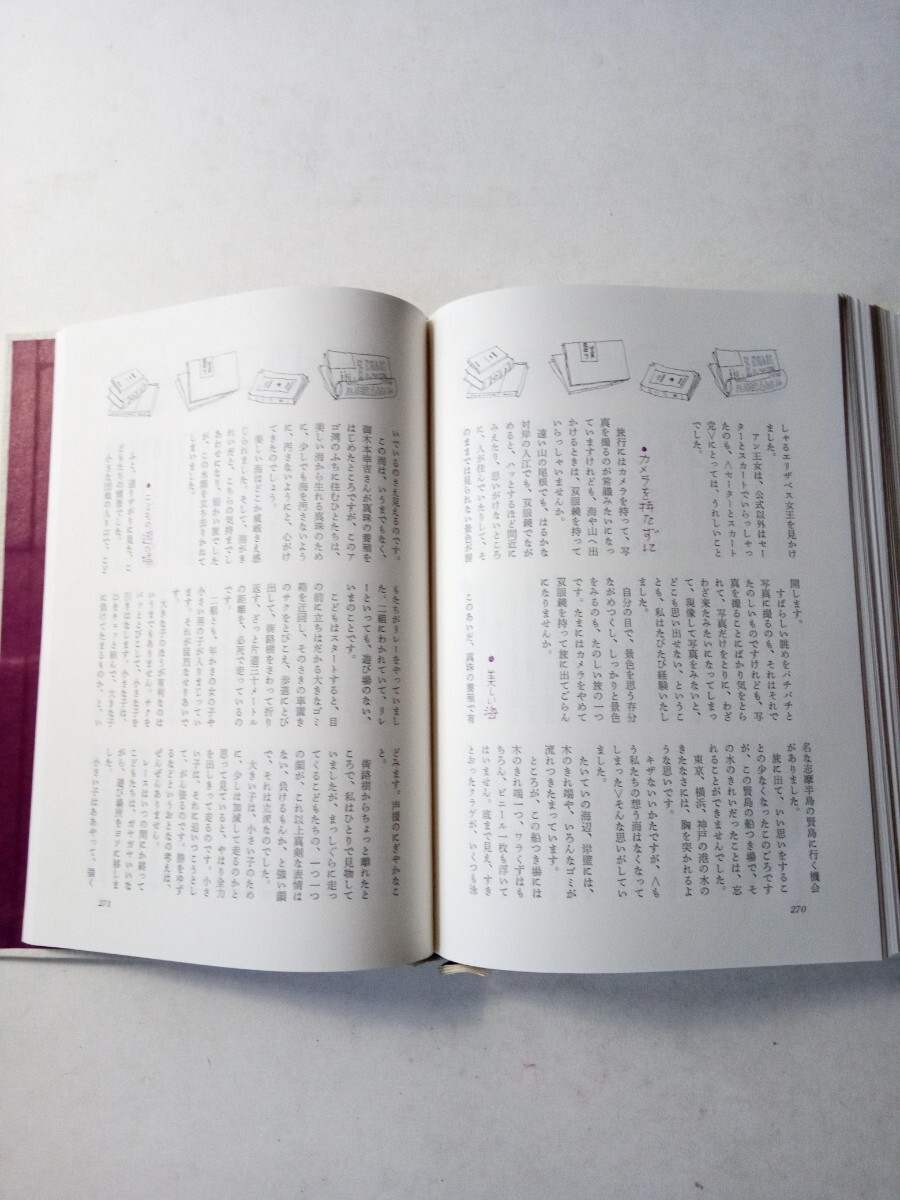 しゃるエリザベス女王を見かけ
ました。
アン王女は、公式以外はセー
ターとスカートでいらっしゃっ
たのも、∧セーターとスカート
党∨にとっては、うれしいこと
でした。
●カメラを持たずに
旅行にはカメラを持って、写
真を撮るのが常識みたいになっ
ていますけれども、海や山へ出
かけるときは、双眼鏡を持って
いらっしゃいませんか。
遠い山の尾根でも、はるかな
対岸の入江でも、双眼鏡でなが
めると、ハッとするほど間近に
みえたり、思いがけないところ
に、人が住んでいたりして、そ
のままでは見られない景色が展
開します。
すばらしい眺めをパチパチと
写真に撮るのも、それはそれで
たのしいものですけれども、写
真を撮ることにばかり気をとら
れて、写真だけをとりに、わざ
わざ来たみたいになってしまっ
て、現像して写真をみないと、
どこも思い出せない、というこ
とも、私はたびたび経験いたし
ました。
自分の目で、景色を思う存分
ながめつくし、しっかりと景色
をみるのも、たのしい旅の一つ
です。たまにはカメラをやめて
双眼鏡を持って旅に出てごらん
になりませんか。
●美しい海
このあいだ、真珠の養殖で有
名な志摩半島の賢島に行く機会
がありました。
旅に出て、いい思いをするこ
との少なくなったこのごろです
が、この賢島の船つき場で、そ
の水のきれいだったことは、忘
れることができませんでした。
東京、横浜、神戸の港の水の
きたなさには、胸を突かれるよ
うな思いです。
キザないいかたですが、∧も
う私たちの想う海はなくなって
しまった∨そんな思いがしてい
ました。
たいていの海辺、岸壁には、
木のきれ端や、いろんなゴミが
流れつきたまっています。
ところが、この船つき場には
木のきれ端一つ、ワラくずはも
ちろん、ビニール一枚も浮いて
はいません。底まで見え、すき
とおったクラゲが、いくつも泳
270
いでいるのさえ見えるのです。
この海は、いうまでもなく、
御木本幸吉さんが真珠の養殖を
はじめたところですが、このア
ゴ湾のふちに住むひとたちは、
美しい海から生れる真珠のため
に、少しでも海を汚さないよう
に、汚さないようにと、心がけ
てきたのでしょう。
美しい海はどこか威厳さえ感
じられました。そして、海がき
れいだと、こちらの気持までし
あわせになり、細かい波でした
が、この水際を立ち去りかねて
もたちがリレーをやっていまし
た。二組にわかれていて、リレ
ーといっても、遊び場のない、
いまのことです。
こどもはスタートすると、目
の前に立ちはだかる大きなゴミ
箱を迂回し、そのさきの車置き
のサクをとびこえ、歩道にとび
出し、街路樹をさわって折り
返す、ざっと片道三十メートル
の距離を、必死で走っているの
です。
二組とも、年かさの女の子や
小さい男の子が入りまじってい
ます。それが猛烈なせりあいで
とみます。声援のにぎやかなこ
と。
街路樹からちょっと離れたと
ころで、私はひとりで見物して
いましたが、まっしぐらに走っ
てくるこどもたちの、一つ一つ
の顔が、これ以上真剣な表情は
ない、負けるもんか、と強い顔
で、それは立派なのでした。
大きい子は、小さい子のため
に、少しは加減して走るのかと
思って見ていると、やはり全力
を出しきって走るのです。小さ
い子は、それに追いつこうとし
271